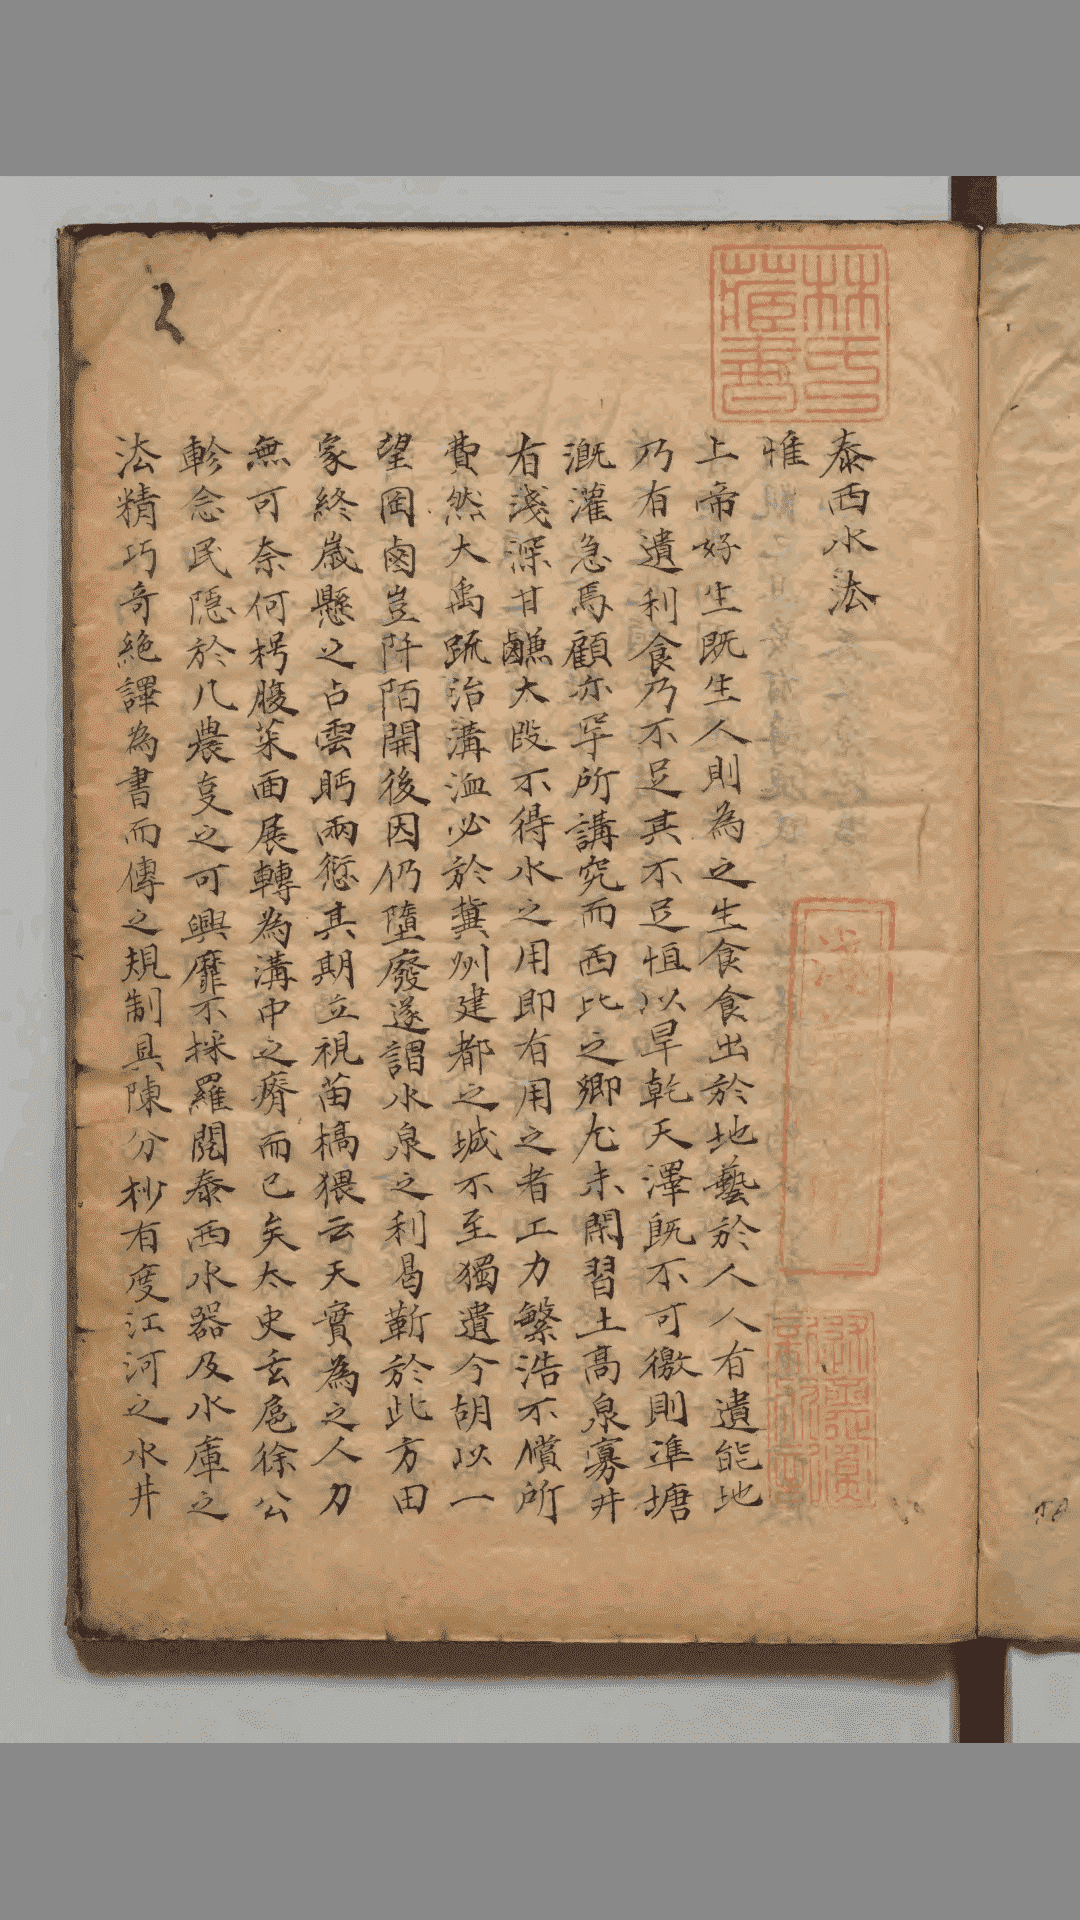 林氏藏書
泰西水法
惟
上帝好生既生人則為之生食食出於地藝於人人有遺能地
乃有遺利食乃不足其不足恒以旱乾天澤既不可徼則準塘
溉灌急焉顧亦罕所講究而西北之鄉尤未閑習土高泉寡井
有淺深甘鹹大段不得水之用即有用之者工力繁浩不償所
費然大禹疏治溝洫必於冀州建都之城不至獨遺今胡以一
望囷鹵豈阡陌開後因仍墮廢遂謂水泉之利曷蘄於此方田
家終歲懸之占雲眄雨愆其期立視苗槁猥云天實為之人力
無可奈何枵腹菜面展轉為溝中之瘠而已矣太史玄扈徐公
軫念民隱於凡農㕝之可興靡不採羅閱泰西水器及水庫之
法精巧奇絶譯為書而傳之規制具陳分杪有度江河之水井